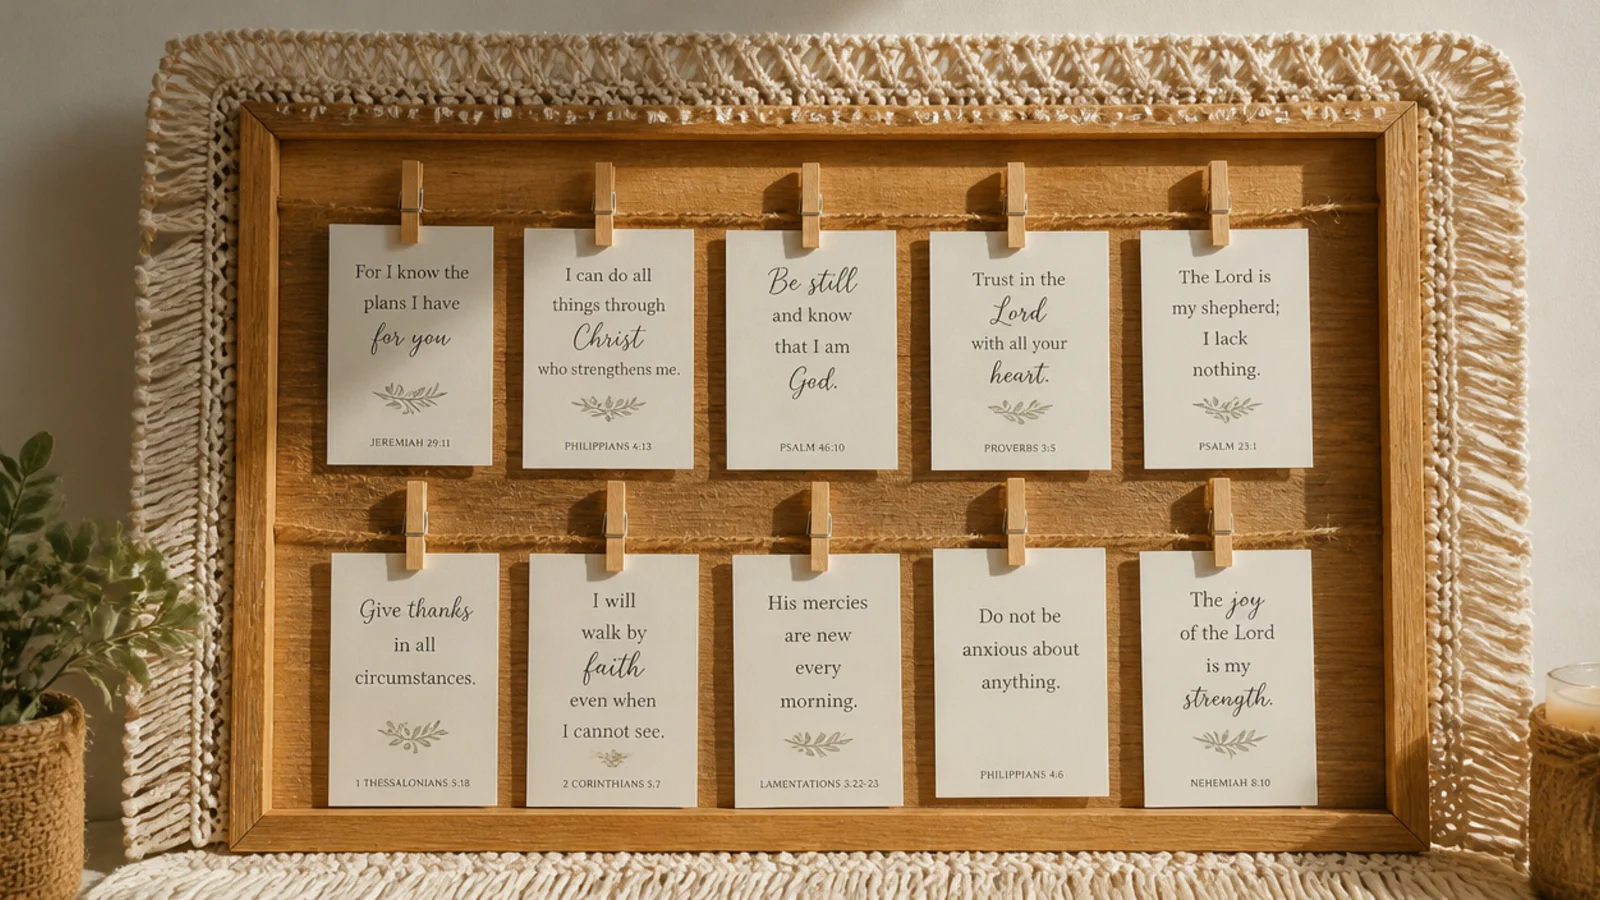 For I know the
plans I have
for you
JEREMIAH 29:11
I can do all
things through
Christ
who strengthens me.
PHILIPPIANS 4:13
Be still
and know
that I am
God.
PSALM 46:10
Trust in the
Lord
with all your
heart.
PROVERBS 3:5
The Lord is
my shepherd;
I lack
nothing.
PSALM 23:1
Give thanks
in all
circumstances.
1 THESSALONIANS 5:18
I will
walk by
faith
even when
I cannot see.
2 CORINTHIANS 5:7
His mercies
are new
every
morning.
LAMENTATIONS 3:22-23
Do not be
anxious about
anything.
PHILIPPIANS 4:6
The joy
of the Lord
is my
strength.
NEHEMIAH 8:10